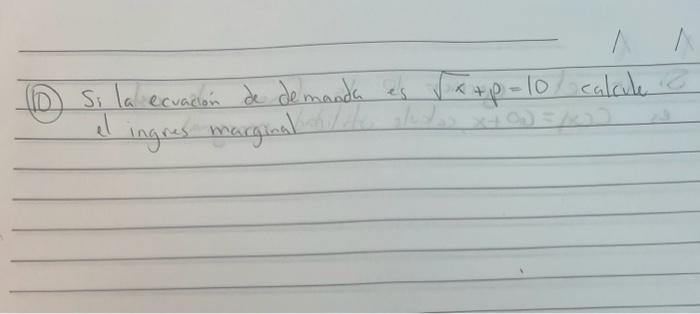 10 Si la ecuación de demanda es √x + p = 10 calcule
el ingres marginal